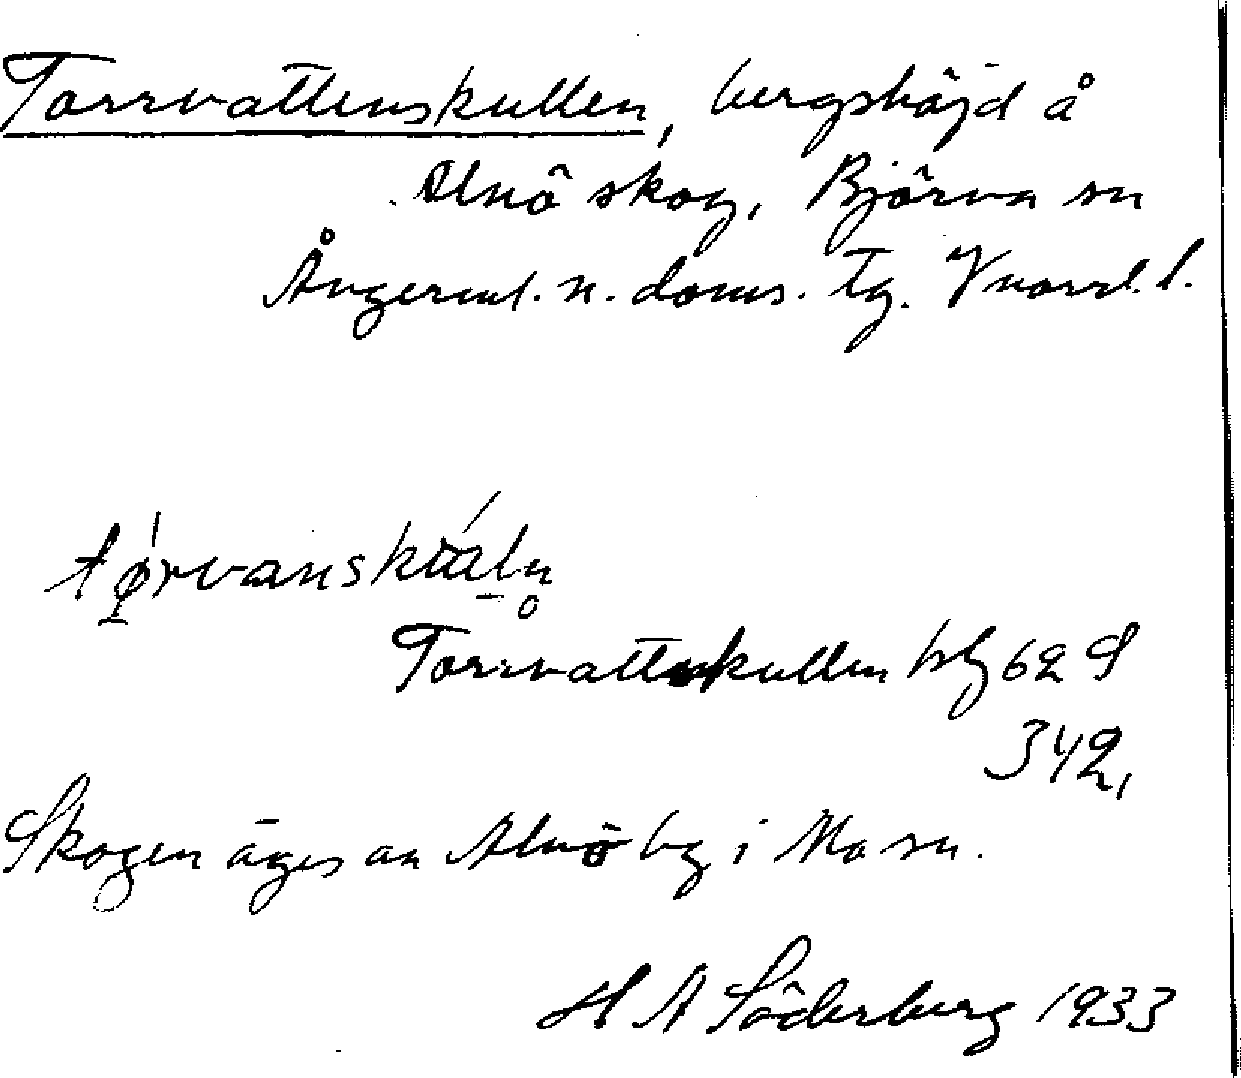 Torrvattenskullen, bergshöjd å
Alnö skog, Björna sn
Ångerml. n. doms. tg. Vnorrl. l.
Torrvattenkullen blg 62 S
342,
Skogen äges av Alnö by i Mo sn.
H A Söderberg 1933